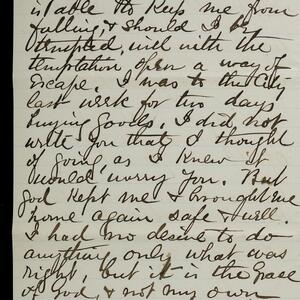 is able to keep me from
falling, & should I be
tempted, will with the
temptation open a way of
escape. I was to the City
last week for two days
buying goods. I did not
write you that I thought
of going as I knew it
would worry you. But
God kept me & brought me
home again safe & well.
I had no desire to do
anything only what was
right, but it is the grace
of God, & not my own